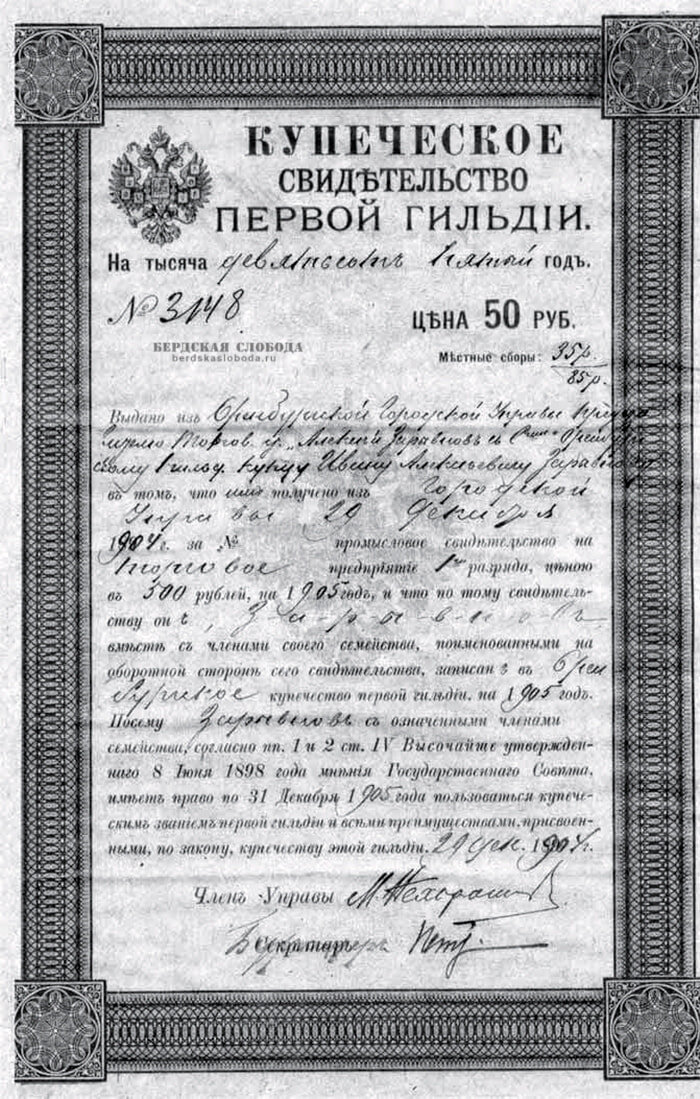 КУПЕЧЕСКОЕ
СВИДѢТЕЛЬСТВО
ПЕРВОЙ ГИЛЬДІИ.
На тысяча девятьсотъ пятый годъ.
№ 3148
ЦѢНА 50 РУБ.
БЕРДСКАЯ СЛОБОДА
berdskasloboda.ru
Мѣстные сборы: 35р.
85р.
Выдано изъ Оренбургской Городской Управы
Торгов. „Алексѣй Зарывновъ с С-ми"
купцу Ивану Алексѣевичу
въ томъ, что имъ получено изъ Городской
Управы 29 Декабря
1904 г. за № промысловое свидѣтельство на
торговое предпріятіе 1го разряда, цѣною
въ 500 рублей, на 1905 годъ, и что по тому свидѣтель-
ству онъ,
вмѣстѣ съ членами своего семейства, поименованными на
оборотной сторонѣ сего свидѣтельства, записанъ въ Орен
бургское купечество первой гильдіи, на 1905 годъ.
Посему Зарывновъ съ означенными членами
семейства, согласно пп. 1 и 2 ст. IV Высочайше утвержден-
наго 8 Іюня 1898 года мнѣнія Государственнаго Совѣта,
имѣетъ право по 31 Декабря 1905 года пользоваться купече-
скимъ званіемъ первой гильдіи и всѣми преимуществами, присвоен-
ными, по закону, купечеству этой гильдіи. 29 дек. 1904 г.
Членъ Управы
Секретарь